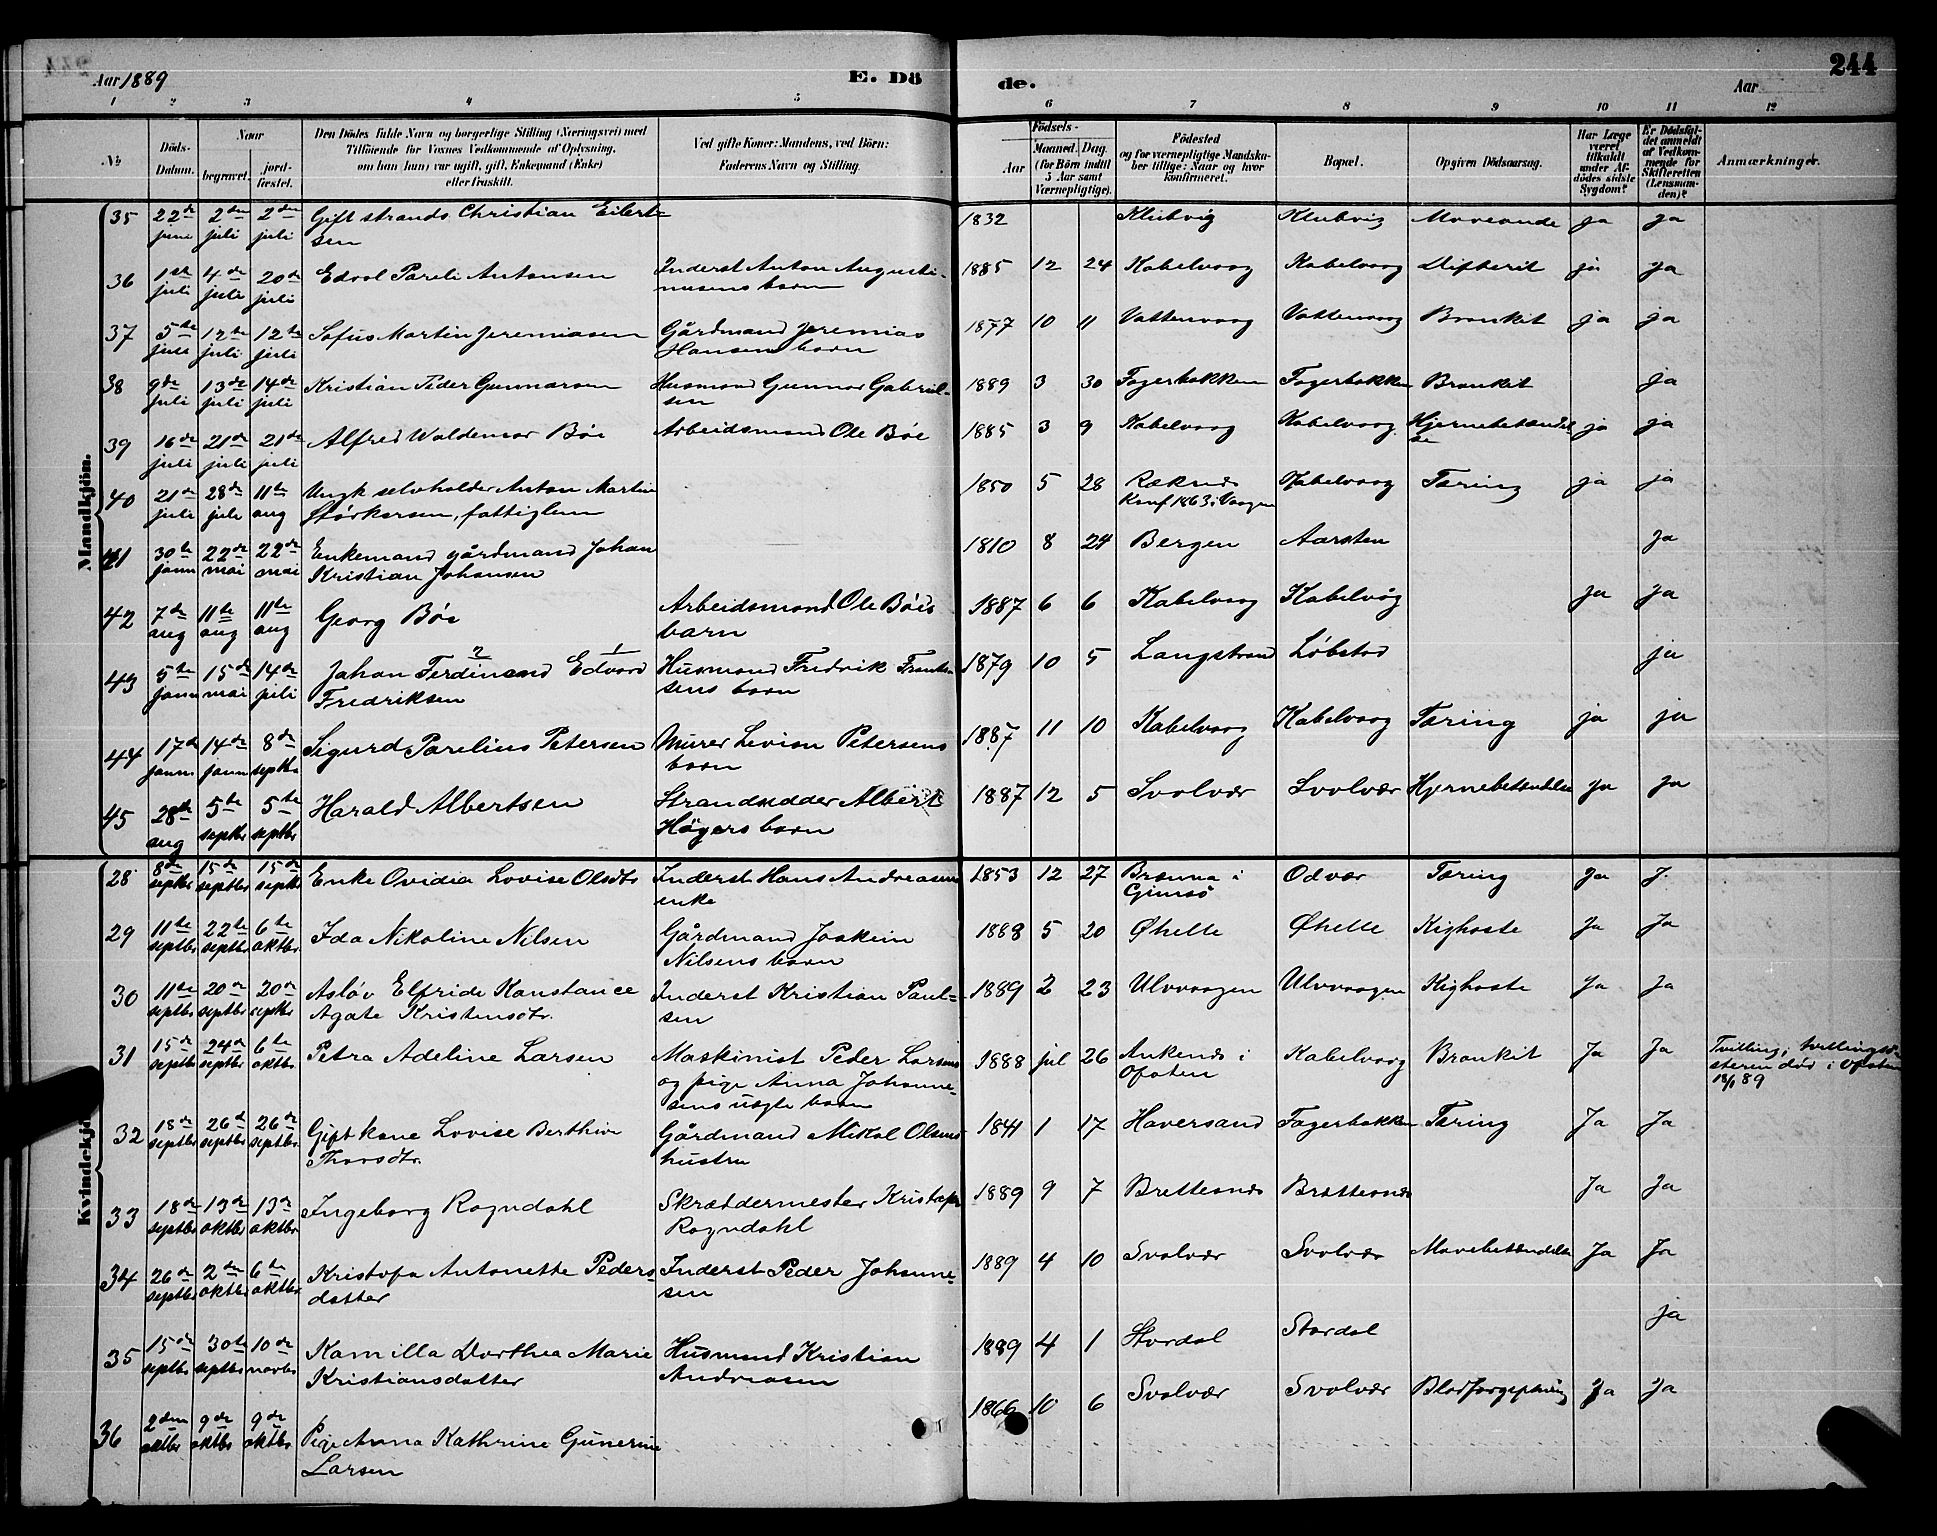 Aar 1889 E. Dö
de. Aar 244
1 2 3 4 5 6 7 8 9 10 11 12
No
Döds-Datum.
Naar begravet. jordfæstet.
Den Dödes fulde Navn og borgerlige Stilling (Næringsvei) med
Tilföiende for Voxnes Vedkommende af Oplysning,
om han (hun) var ugift, gift, Enkemand (Enke)
eller fraskilt.
Ved gifte Koner: Mandens, ved Börn:
Faderens Navn og Stilling.
Födsels-
Aar Maaned. Dag.
(for Börn indtil
5 Aar samt
Værnepligtige).
Födested
og for værnepligtige Mandskaber
tillige: Naar og hvor
konfirmeret.
Bopæl.
Opgiven Dödsaarsag.
Har Læge
været
tilkaldt
under Afdödes
sidste
Sygdom?
Er Dödsfaldet
anmeldt
af Vedkommende
for
Skifteretten
(Lensmanden)?
Anmærkninger.
Mandkjön.
35 22de juni 2den juli 2den juli Gift strands. Christian Eilertsen 1832 Klubvig Klubvig ja ja
36 1ste juli 4de juli 20de juli Edvol Pareli Antonsen Inderst Anton Augustinusens barn 1885 12 24 Kabelvaag Kabelvaag Difterit ja ja
37 5te juli 12te juli 12te juli Sofus Martin Jeremiasen Gårdmand Jeremias Hansens barn 1877 10 11 Vattervaag Vattervaag Bronkit ja ja
38 9de juli 13de juli 14de juli Kristian Peder Gunnarsen Husmand Gunnar Gabrielsen 1889 3 30 Fagerbakken Fagerbakken Bronkit ja
39 16de juli 21de juli 21de juli Alfred Waldemar Böe Arbeidsmand Ole Böe 1885 3 9 Kabelvaag Kabelvaag Hjernebetændelse ja ja
40 21de juli 28de juli 11te aug Ungk. selvholder Anton Martin Størkersen, fattiglem 1850 5 28 Ræknes Konf 1863 i Vaagen Kabelvaag Tæring ja ja
41 30te janu 22de mai 22de mai Enkemand gårdmand Johan Kristian Johansen 1810 8 24 Bergen Aarsten ja
42 7de aug 11te aug 11te aug Georg Böe Arbeidsmand Ole Böes barn 1887 6 6 Kabelvaag Kabelvåg ja ja
43 5te janu 15de mai 14de juli Johan Ferdinand 2 Edvard 1 Fredriksen Husmand Fredrik barn 1879 10 5 Langstrand Løbstad ja
44 17de janu 14de janu 8de septbr Sigurd Parelius Petersen Murer Levion Petersens barn 1887 11 10 Kabelvaag Kabelvaag Tæring ja ja
45 28de aug 5te septbr 5te septbr Harald Albertsen Strandsidder Albert Høyers barn 1887 12 5 Svolvær Svolvær Hjernebetændelse ja ja
Kvindekjön
28 8de septbr 15de septbr 15de septbr Enke Ovidia Lovise Olsdtr Inderst Hans Andreasens enke 1853 12 27 Brenna i Gimsö Odvær Tæring Ja J.
29 11te septbr 22de septbr 6te oktbr Ida Nikoline Nilsen Gårdmand Joakim Nilsens barn 1888 5 20 Øhelle Øhelle Kighoste Ja Ja
30 11te septbr 20de septbr 20de septbr Asløv Elfride Konstance Agate Kristensdtr. Inderst Kristian Paulsen 1889 2 23 Ulvvaagen Ulvvaagen Kighoste Ja Ja
31 15de septbr 24de septbr 6te oktbr Petra Adeline Larsen Maskinist Peder Larsens og pige Anna Johannesens uægte barn 1888 jul 26 Ankenes i Ofoten Kabelvaag Bronkit Ja Ja Tvilling; tvillingsøsteren død i Ofoten 18/1 89
32 18de septbr 26de septbr 26de septbr Gift kone Lovise Berthine Thorsdtr. Gårdmand Mikal Olsens hustru 1841 1 17 Haversand Fagerbakken Tæring Ja Ja
33 18de septbr 13de oktbr 13de oktbr Ingeborg Rogndahl Skræddermester Kristofer Rogndahl 1889 9 7 Brettesnes Brettesnes Ja Ja
34 26de septbr 2den oktbr 6te oktbr Kristofa Antonette Pedersdatter Inderst Peder Johannesen 1889 4 10 Svolvær Svolvær Mavebetændelse Ja Ja
35 15de septbr 30te septbr 10de novbr Kamilla Dorthea Marie Kristiansdatter Husmand Kristian Andreasen 1889 4 1 Stordal Stordal ja
36 2den oktbr 9de oktbr 9de oktbr Pige Anna Kathrine Gunerine Larsen 1866 10 6 Svolvær Svolvær Blodforgiftning Ja Ja